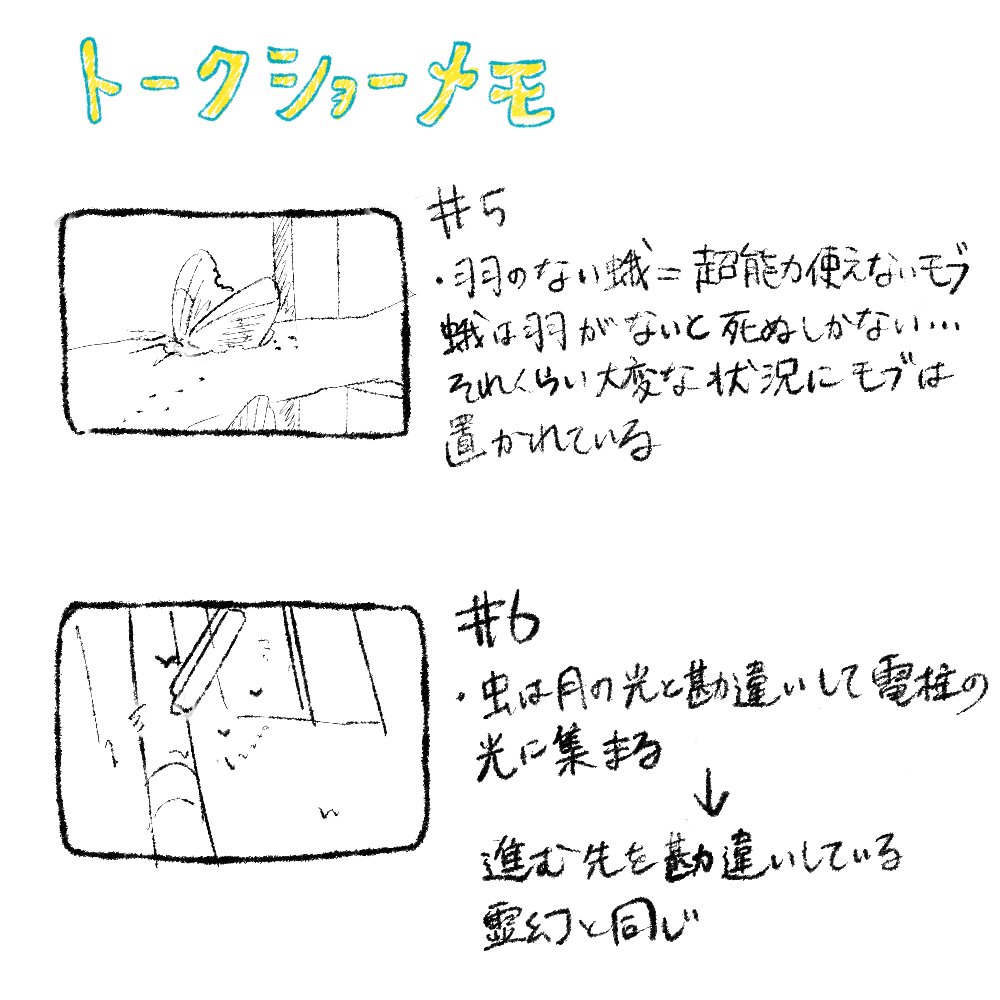 トークショーメモ
#5
・羽のない蛾=超能力使えないモブ
蛾は羽がないと死ぬしかない…
それくらい大変な状況にモブは
置かれている
#6
・虫は月の光と勘違いして電柱の
光に集まる
↓
進む先を勘違いしている
霊幻と同じ